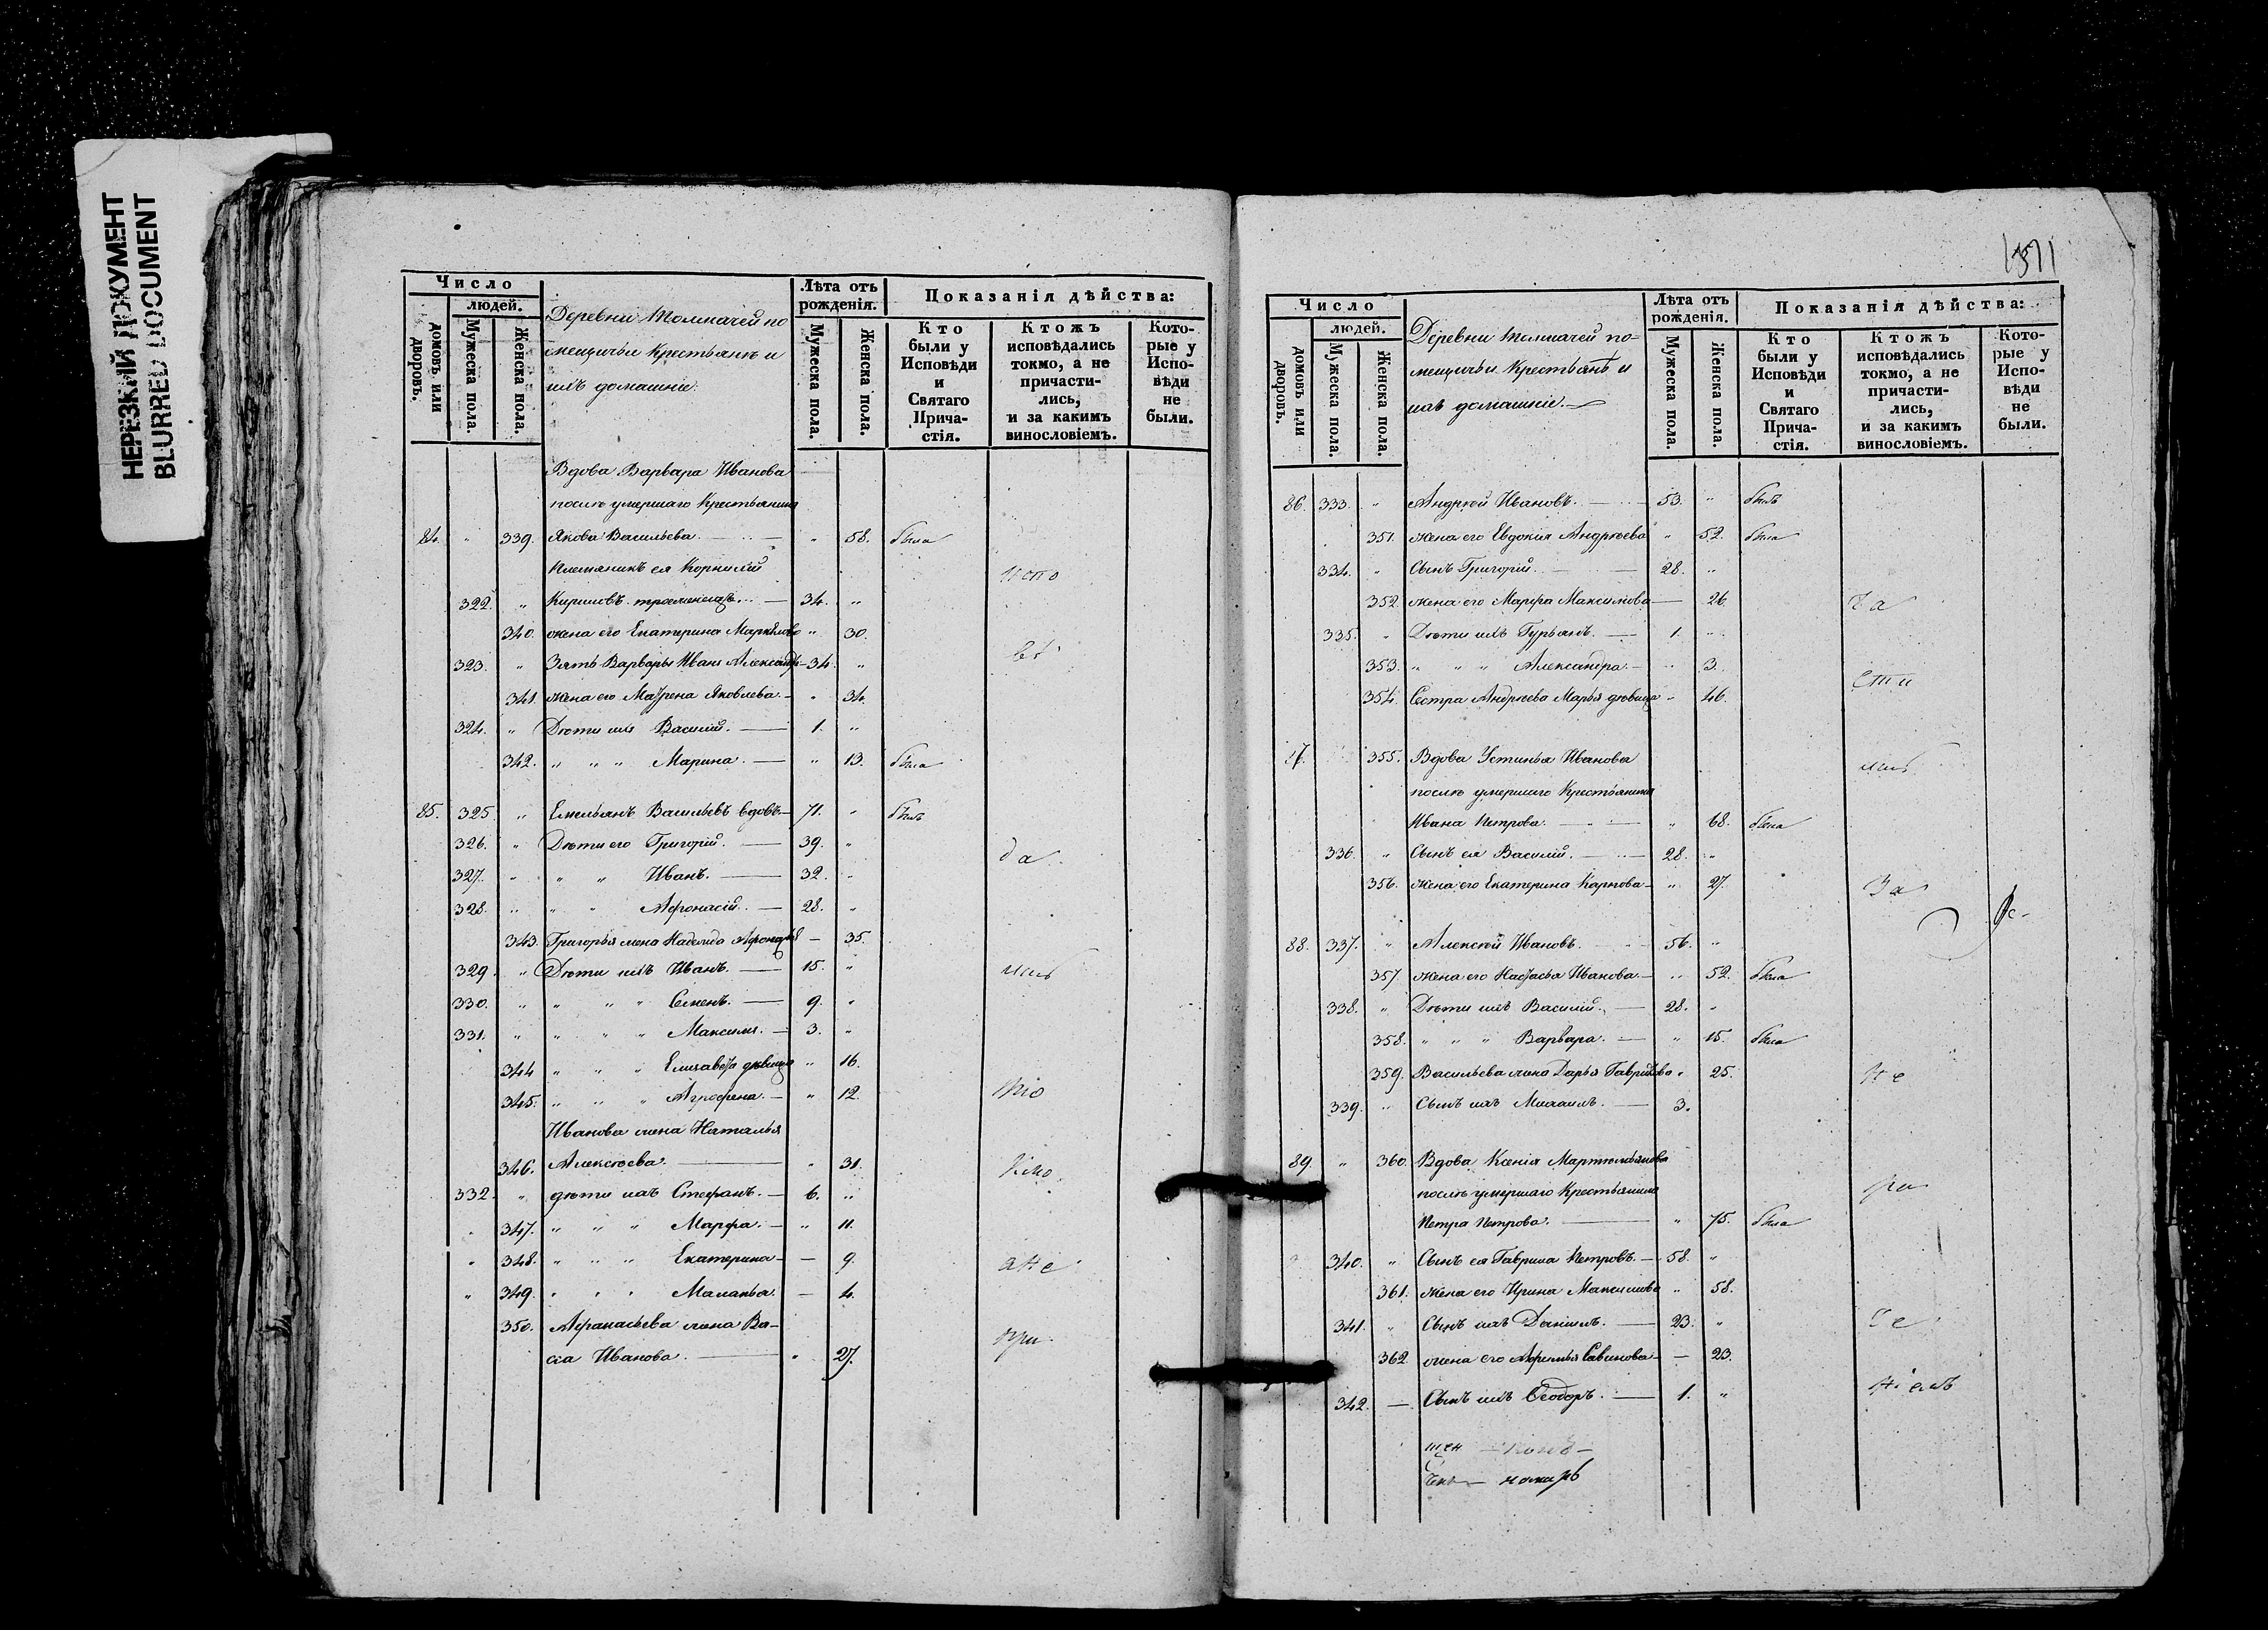 НЕРЕЗКИЙ ДОКУМЕНТ
BLURRED DOCUMENT
Число
людей.
домовъ или дворовъ.
Мужеска пола.
Женска пола.
Деревни Толмачей по
мещичьи Крестьянъ и
ихъ домашніе.
Лѣта отъ рожденія.
Мужеска пола.
Женска пола.
Показанія дѣйства:
Кто были у Исповѣди и Святаго Прича- стія.
Ктожъ исповѣдались токмо, а не причасти- лись, и за какимъ винословіемъ.
Кото- рые у Испо- вѣди не были.
Вдова Варвара Иванова
послѣ умершаго Крестьянина
84. " 339. Якова Васильева. — " 58. была
Племянникъ ея Корнилій
322. " Кириловъ — 34. "
340. жена его Екатерина " 30.
323. " Зять Варвары Иванъ 34. "
341. жена его Матрена Яковлева. — " 34.
324. " Дѣти ихъ Василій. — 1. "
342. " " " Марина. — " 13. была
85. 325. " Емельянъ Васильевъ вдовъ — 71. " былъ
326. " Дѣти его Григорій. — 39. "
327. " " " Иванъ. — 32. "
328. " " " Афонасій. — 28. "
343. Григорья жена Надежда — 35.
329. " Дѣти ихъ Иванъ. — 15. "
330. " " " " Семенъ. — 9. "
331. " " " " Максимъ. — 3. "
344 " " " Елизавета дѣвица " 16.
345. " " " Агрофена. — " 12.
Иванова жена Наталья
346. Алексѣева. — " 31.
332. " дѣти ихъ Стефанъ. — 6. "
347. " " " Марфа. — " 11.
" 348. " " " Екатерина — 9.
" 349. " " " Маланья. — 4.
350. Афанасьева жена Ва-
сса Иванова. — " 27.
испо
вѣ
да
лись
то
кмо
а не
при
Число
людей.
домовъ или дворовъ.
Мужеска пола.
Женска пола.
Деревни Толмачей по-
мещичьи Крестьянъ и
ихъ домашніе. —
Лѣта отъ рожденія.
Мужеска пола.
Женска пола.
Показанія дѣйства:
Кто были у Исповѣди и Святаго Прича- стія.
Ктожъ исповѣдались токмо, а не причасти- лись, и за какимъ винословіемъ.
Кото- рые у Испо- вѣди не были.
86. 333. " Андрей Ивановъ. — 53. " былъ
351. жена его Евдокия Андреева " 52. была
334. " Сынъ Григорій. — 28. "
352. жена его Марфа Максимова — 26.
335. " Дѣти ихъ Гурьянъ. — 1. "
353. " " " Александра. — " 3.
354. Сестра Андреева Марья дѣвица " 46.
87. 355. Вдова Устинья Иванова
послѣ умершаго Крестьянина
Ивана Петрова. — " 68. была
336. " Сынъ ея Василій. — 28. "
356. жена его Екатерина Карпова — " 27.
88. 337. " Алексѣй Ивановъ. — 56. "
357. жена его Настасья Иванова. — " 52. была
338. " Дѣти ихъ Василій. — 28. "
358. " " " Варвара. — " 15. была
359. Васильева жена Дарья Гаврилова " 25.
339. " Сынъ ихъ Михаилъ. — 3.
89. " 360. Вдова Ксенія Мартемьянова
послѣ умершаго Крестьянина
Петра Петрова. — " 75. была
340. " Сынъ ея Гаврила Петровъ. — 58. "
361. жена его Ирина Максимова " 58.
341. " Сынъ ихъ Даниилъ. — 23. "
362. жена его Савинова — — 23.
342. — Сынъ ихъ Ѳеодоръ. — 1. "
ча
сти
лись
За
не
ра
де
ніемъ